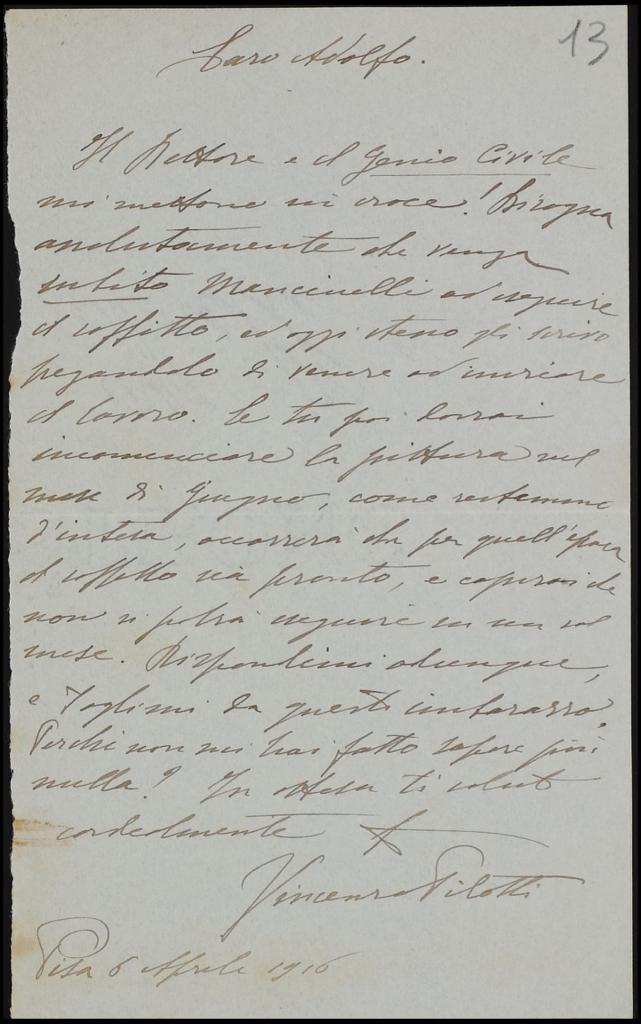 13
Caro Adolfo.
Il Rettore e il Genio Civile
mi mettono in croce! Bisogna
assolutamente che venga
subito Mancinelli ad eseguire
il soffitto, ed oggi stesso gli scrivo
pregandolo di venire ad iniziare
il lavoro. Se tu poi dovrai
incominciare la pittura nel
mese di Giugno, come restammo
d'intesa, occorrerà che per quell'epoca
il soffitto sia pronto, e capirai che
non si potrà eseguire in un sol
mese. Rispondimi adunque,
e toglimi da questi imbarazzo.
Perchè non mi hai fatto sapere più
nulla? In attesa ti saluto
cordialmente
Vincenzo Pilotti
Pisa 6 Aprile 1916